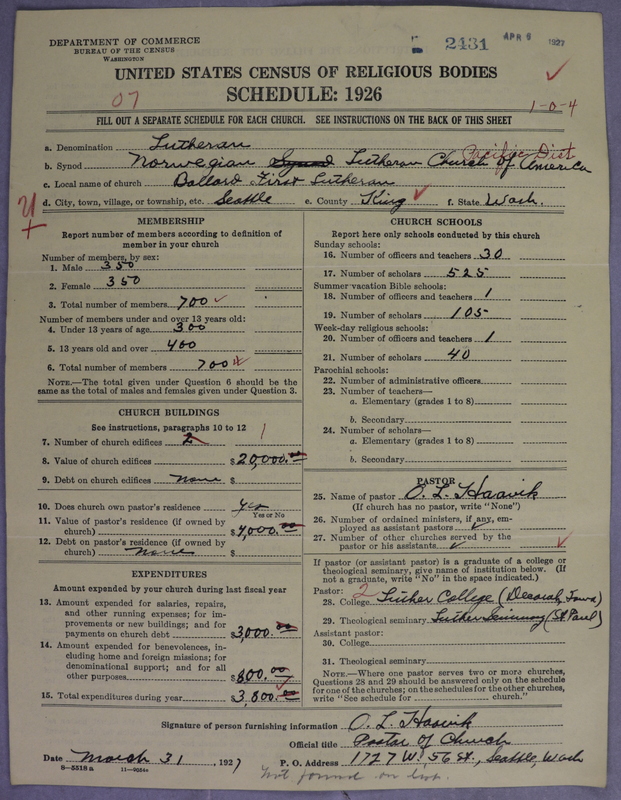 DEPARTMENT OF COMMERCE
BUREAU OF THE CENSUS
WASHINGTON
2431 APR 6 1927
UNITED STATES CENSUS OF RELIGIOUS BODIES
SCHEDULE: 1926
07
1-0-4
FILL OUT A SEPARATE SCHEDULE FOR EACH CHURCH. SEE INSTRUCTIONS ON THE BACK OF THIS SHEET
a. Denomination Lutheran
Pacific Dist
b. Synod Norwegian Synod Lutheran Church of America
c. Local name of church Ballard First Lutheran
d. City, town, village, or township, etc. Seattle e. County King f. State Wash.
MEMBERSHIP
Report number of members according to definition of member in your church
Number of members, by sex:
1. Male 350
2. Female 350
3. Total number of members 700
Number of members under and over 13 years old:
4. Under 13 years of age 300
5. 13 years old and over 400
6. Total number of members 700
NOTE.—The total given under Question 6 should be the same as the total of males and females given under Question 3.
CHURCH BUILDINGS
See instructions, paragraphs 10 to 12
7. Number of church edifices 2 1
8. Value of church edifices $20,000.00
9. Debt on church edifices none $
10. Does church own pastor's residence yes
Yes or No
11. Value of pastor's residence (if owned by church) $4,000.00
12. Debt on pastor's residence (if owned by church) none $
EXPENDITURES
Amount expended by your church during last fiscal year
13. Amount expended for salaries, repairs, and other running expenses; for improvements or new buildings; and for payments on church debt $3,000.00
14. Amount expended for benevolences, including home and foreign missions; for denominational support; and for all other purposes $800.00
15. Total expenditures during year $3,800.00
CHURCH SCHOOLS
Report here only schools conducted by this church
Sunday schools:
16. Number of officers and teachers 30
17. Number of scholars 525
Summer vacation Bible schools:
18. Number of officers and teachers 1
19. Number of scholars 105
Week-day religious schools:
20. Number of officers and teachers 1
21. Number of scholars 40
Parochial schools:
22. Number of administrative officers
23. Number of teachers—
a. Elementary (grades 1 to 8)
b. Secondary
24. Number of scholars—
a. Elementary (grades 1 to 8)
b. Secondary
PASTOR
25. Name of pastor O. L. Haavik
(If church has no pastor, write "None")
26. Number of ordained ministers, if any, employed as assistant pastors
27. Number of other churches served by the pastor or his assistants
If pastor (or assistant pastor) is a graduate of a college or theological seminary, give name of institution below. (If not a graduate, write "No" in the space indicated.)
Pastor: 2
28. College Luther College (Decorah, Iowa)
29. Theological seminary Luther Seminary (St Paul)
Assistant pastor:
30. College
31. Theological seminary
NOTE.—Where one pastor serves two or more churches, Questions 28 and 29 should be answered only on the schedule for one of the churches; on the schedules for the other churches, write "See schedule for church."
Signature of person furnishing information O. L. Haavik
Official title Pastor of Church
Date March 31, 1927 P. O. Address 1727 W. 56 St., Seattle, Wash
8-5518a 11-9664a
Not found on list.